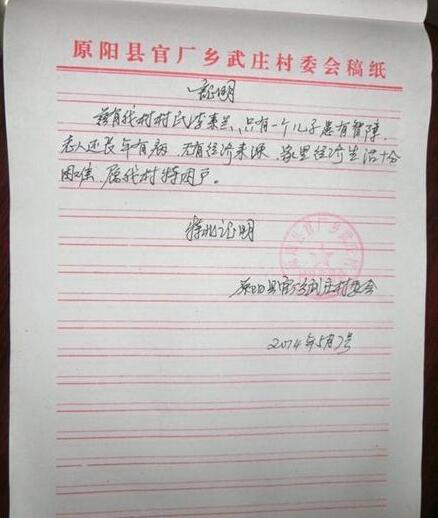 原阳县官厂乡武庄村委会稿纸
证明
兹有我村村民李秉兰,只有一个儿子患有智障,
老人还长年有病,无有经济来源,家里经济生活十分
困难,属我村特困户。
特此证明
原阳县官厂乡武庄村委会
2014年5月7号